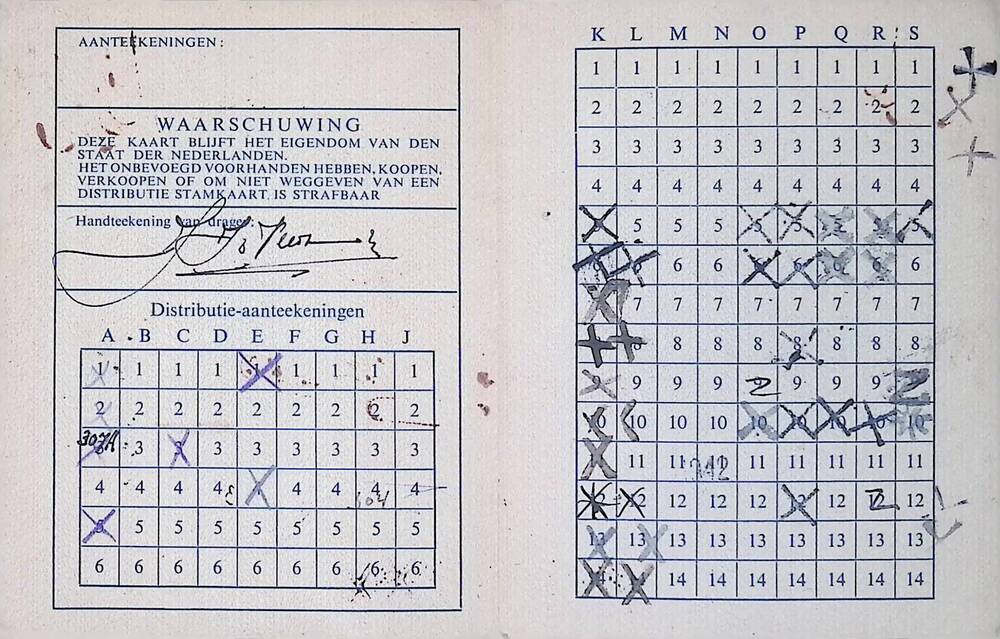 AANTEEKENINGEN:
WAARSCHUWING
DEZE KAART BLIJFT HET EIGENDOM VAN DEN
STAAT DER NEDERLANDEN.
HET ONBEVOEGD VOORHANDEN HEBBEN, KOOPEN,
VERKOOPEN OF OM NIET WEGGEVEN VAN EEN
DISTRIBUTIE STAMKAART IS STRAFBAAR
Handteekening van drager:
Distributie-aanteekeningen
A B C D E F G H J
1 1 1 1 1 1 1 1 1
2 2 2 2 2 2 2 2 2
307A 3 3 3 3 3 3 3 3
4 4 4 4 4 4 4 4
5 5 5 5 5 5 5 5 5
6 6 6 6 6 6 6 6 6
K L M N O P Q R S
1 1 1 1 1 1 1 1 1
2 2 2 2 2 2 2 2 2
3 3 3 3 3 3 3 3 3
4 4 4 4 4 4 4 4 4
5 5 5 5 5 5
6 6 6 6 6 6 6
7 7 7 7 7 7 7 7
8 8 8 8 8 8 8
9 9 9 9 9 9
10 10 10 10 10 10
11 11 11 11 11 11 11 11
12 12 12 12 12 12 12
13 13 13 13 13 13 13 13 13
14 14 14 14 14 14 14 14